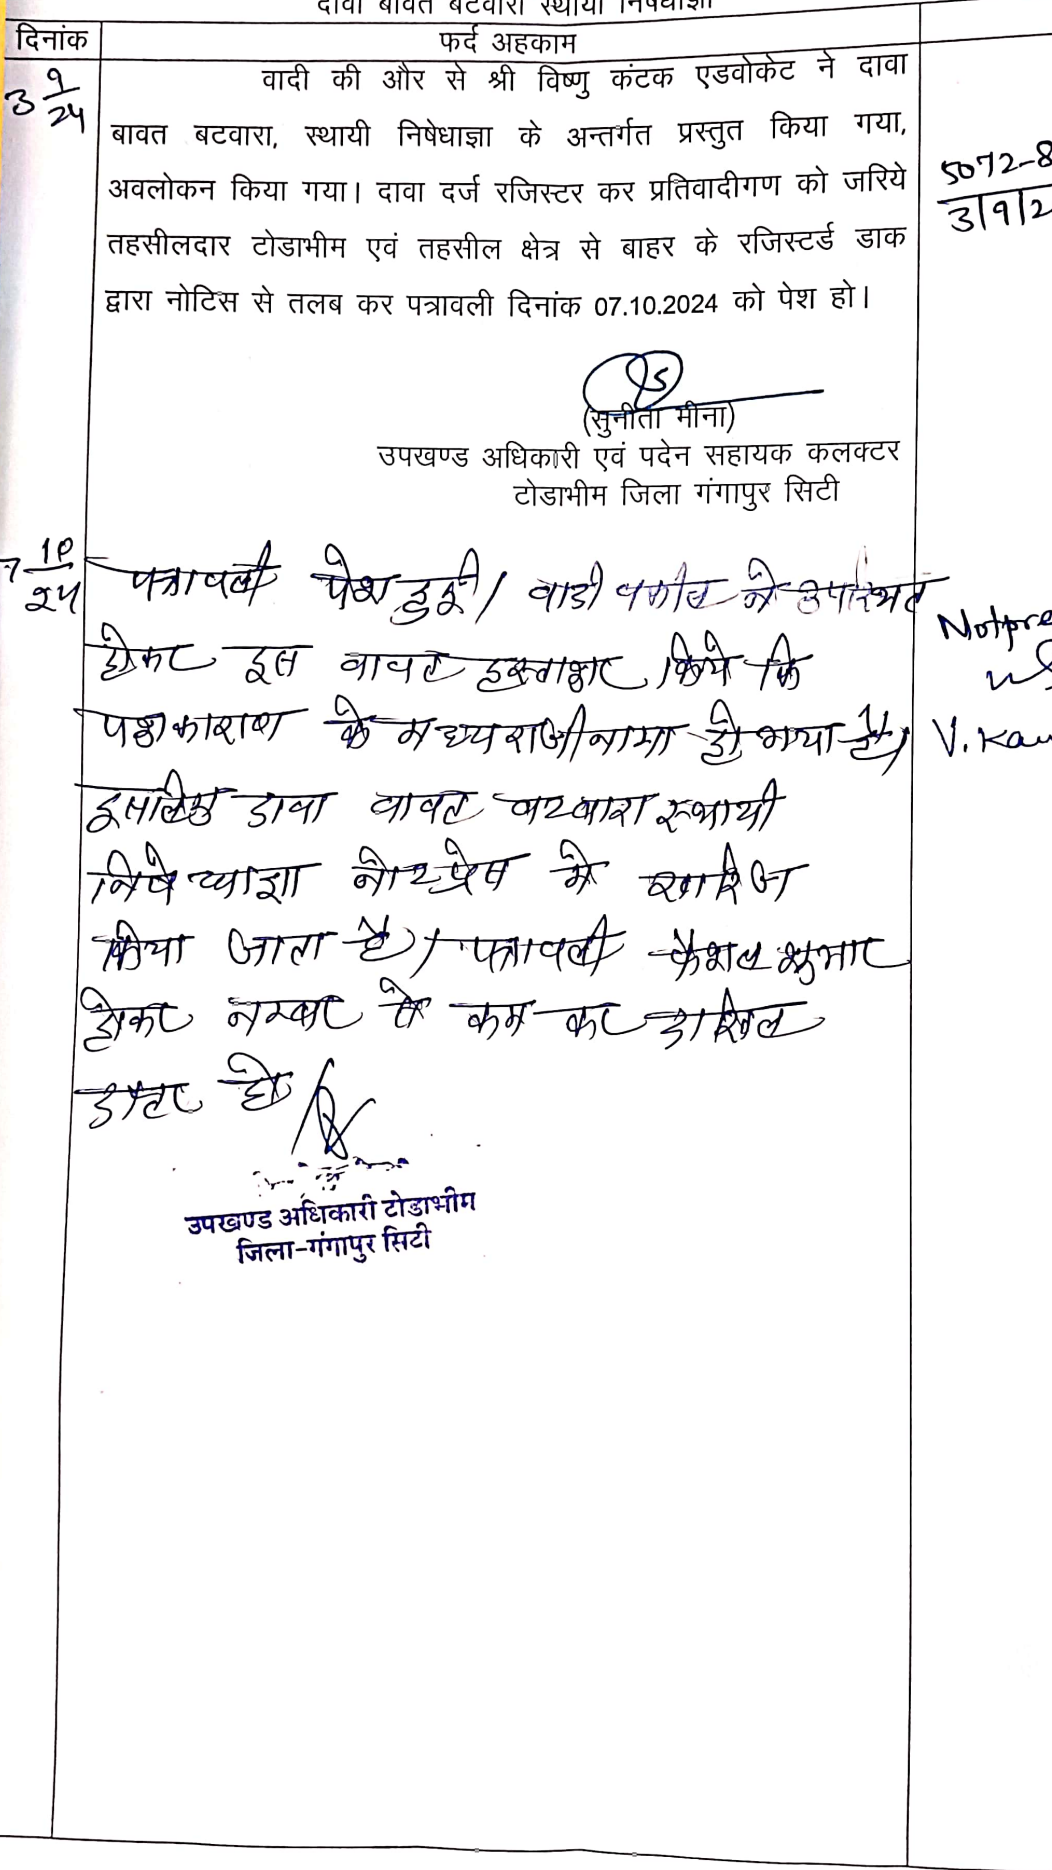 दावा बावत बटवारा स्थायी निषेधाज्ञा
दिनांक
फर्द अहकाम
3 9/24
वादी की और से श्री विष्णु कंटक एडवोकेट ने दावा
बावत बटवारा, स्थायी निषेधाज्ञा के अन्तर्गत प्रस्तुत किया गया,
अवलोकन किया गया। दावा दर्ज रजिस्टर कर प्रतिवादीगण को जरिये
तहसीलदार टोडाभीम एवं तहसील क्षेत्र से बाहर के रजिस्टर्ड डाक
द्वारा नोटिस से तलब कर पत्रावली दिनांक 07.10.2024 को पेश हो।
5072-8
3/9/2
(सुनीता मीना)
उपखण्ड अधिकारी एवं पदेन सहायक कलक्टर
टोडाभीम जिला गंगापुर सिटी
7 10/24
पत्रावली पेश हुई। वादी वकील ने उपस्थित
होकर इस बावत हस्ताक्षर किये कि
पक्षकारान के मध्य राजीनामा हो गया है।
इसलिए दावा बावत बटवारा स्थायी
निषेधाज्ञा नोटप्रेस मे खारिज
किया जाता है। पत्रावली फैसल शुमार
होकर नम्बर से कम कर दाखिल
दफ्तर हो
Notpre
V. Kau
उपखण्ड अधिकारी टोडाभीम
जिला-गंगापुर सिटी